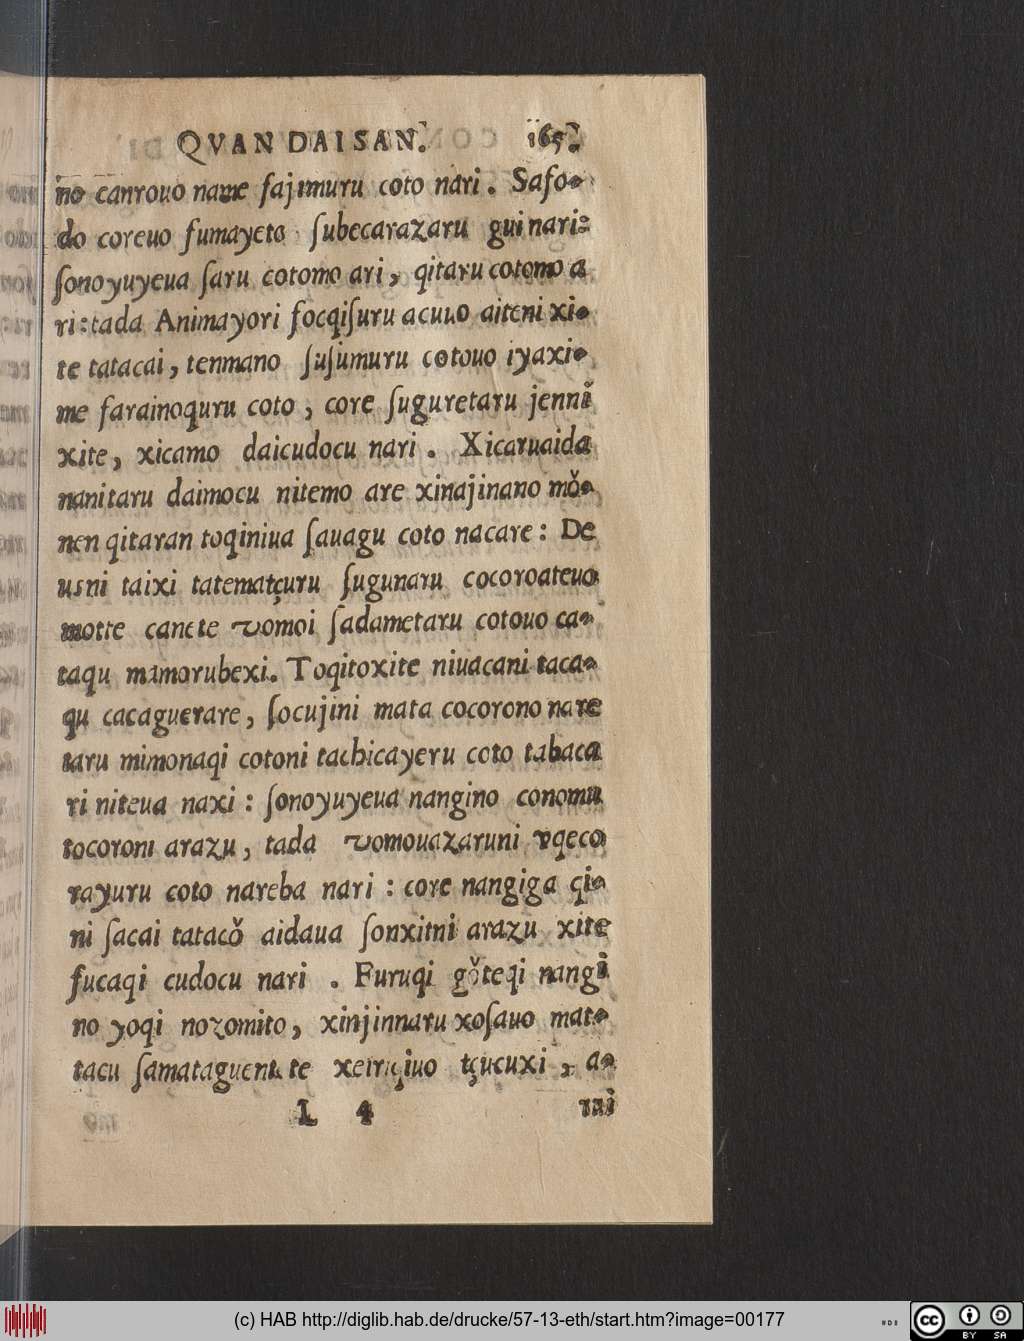 QVAN DAI SAN. 165.
no canrouo name ſajimuru coto nari. Safo-
do coreuo fumayeta ſubecarazaru gui nari:
ſonoyuyeua ſaru cotomo ari, qitaru cotomo a
ri: tada Animayori focqiſuru acuuo aiteni xi-
te tatacai, tenmano ſuſumuru cotouo iyaxi-
me farainoquru coto, core ſuguretaru jennǐ
xite, xicamo daicudocu nari. Xicaruaida
nanitaru daimocu nitemo are xinajinano mǒ-
nen qitaran toqiniua ſauagu coto nacare: De
usni taixi tatematçuru ſugunaru cocoroateuo
motte canete vomoi ſadametaru cotouo ca-
taqu mamorubexi. Toqitoxite niuacani taca-
qu cacaguerare, ſocujini mata cocorono nare
taru mimonaqi cotoni tachicayeru coto tabaca
ri niteua naxi: ſonoyuyeua nangino conomu
tocoroni arazu, tada vomouazaruni vqeco
rayuru coto nareba nari: core nangiga qi-
ni ſacai tatacǒ aidaua ſonxitni arazu xite
fucaqi cudocu nari. Furuqi gǒteqi nangi
no yoqi nozomito, xinjinnaru xoſauo mat-
tacu ſamataguen te xeiriqiuo tçucuxi, a-
L 4 rui